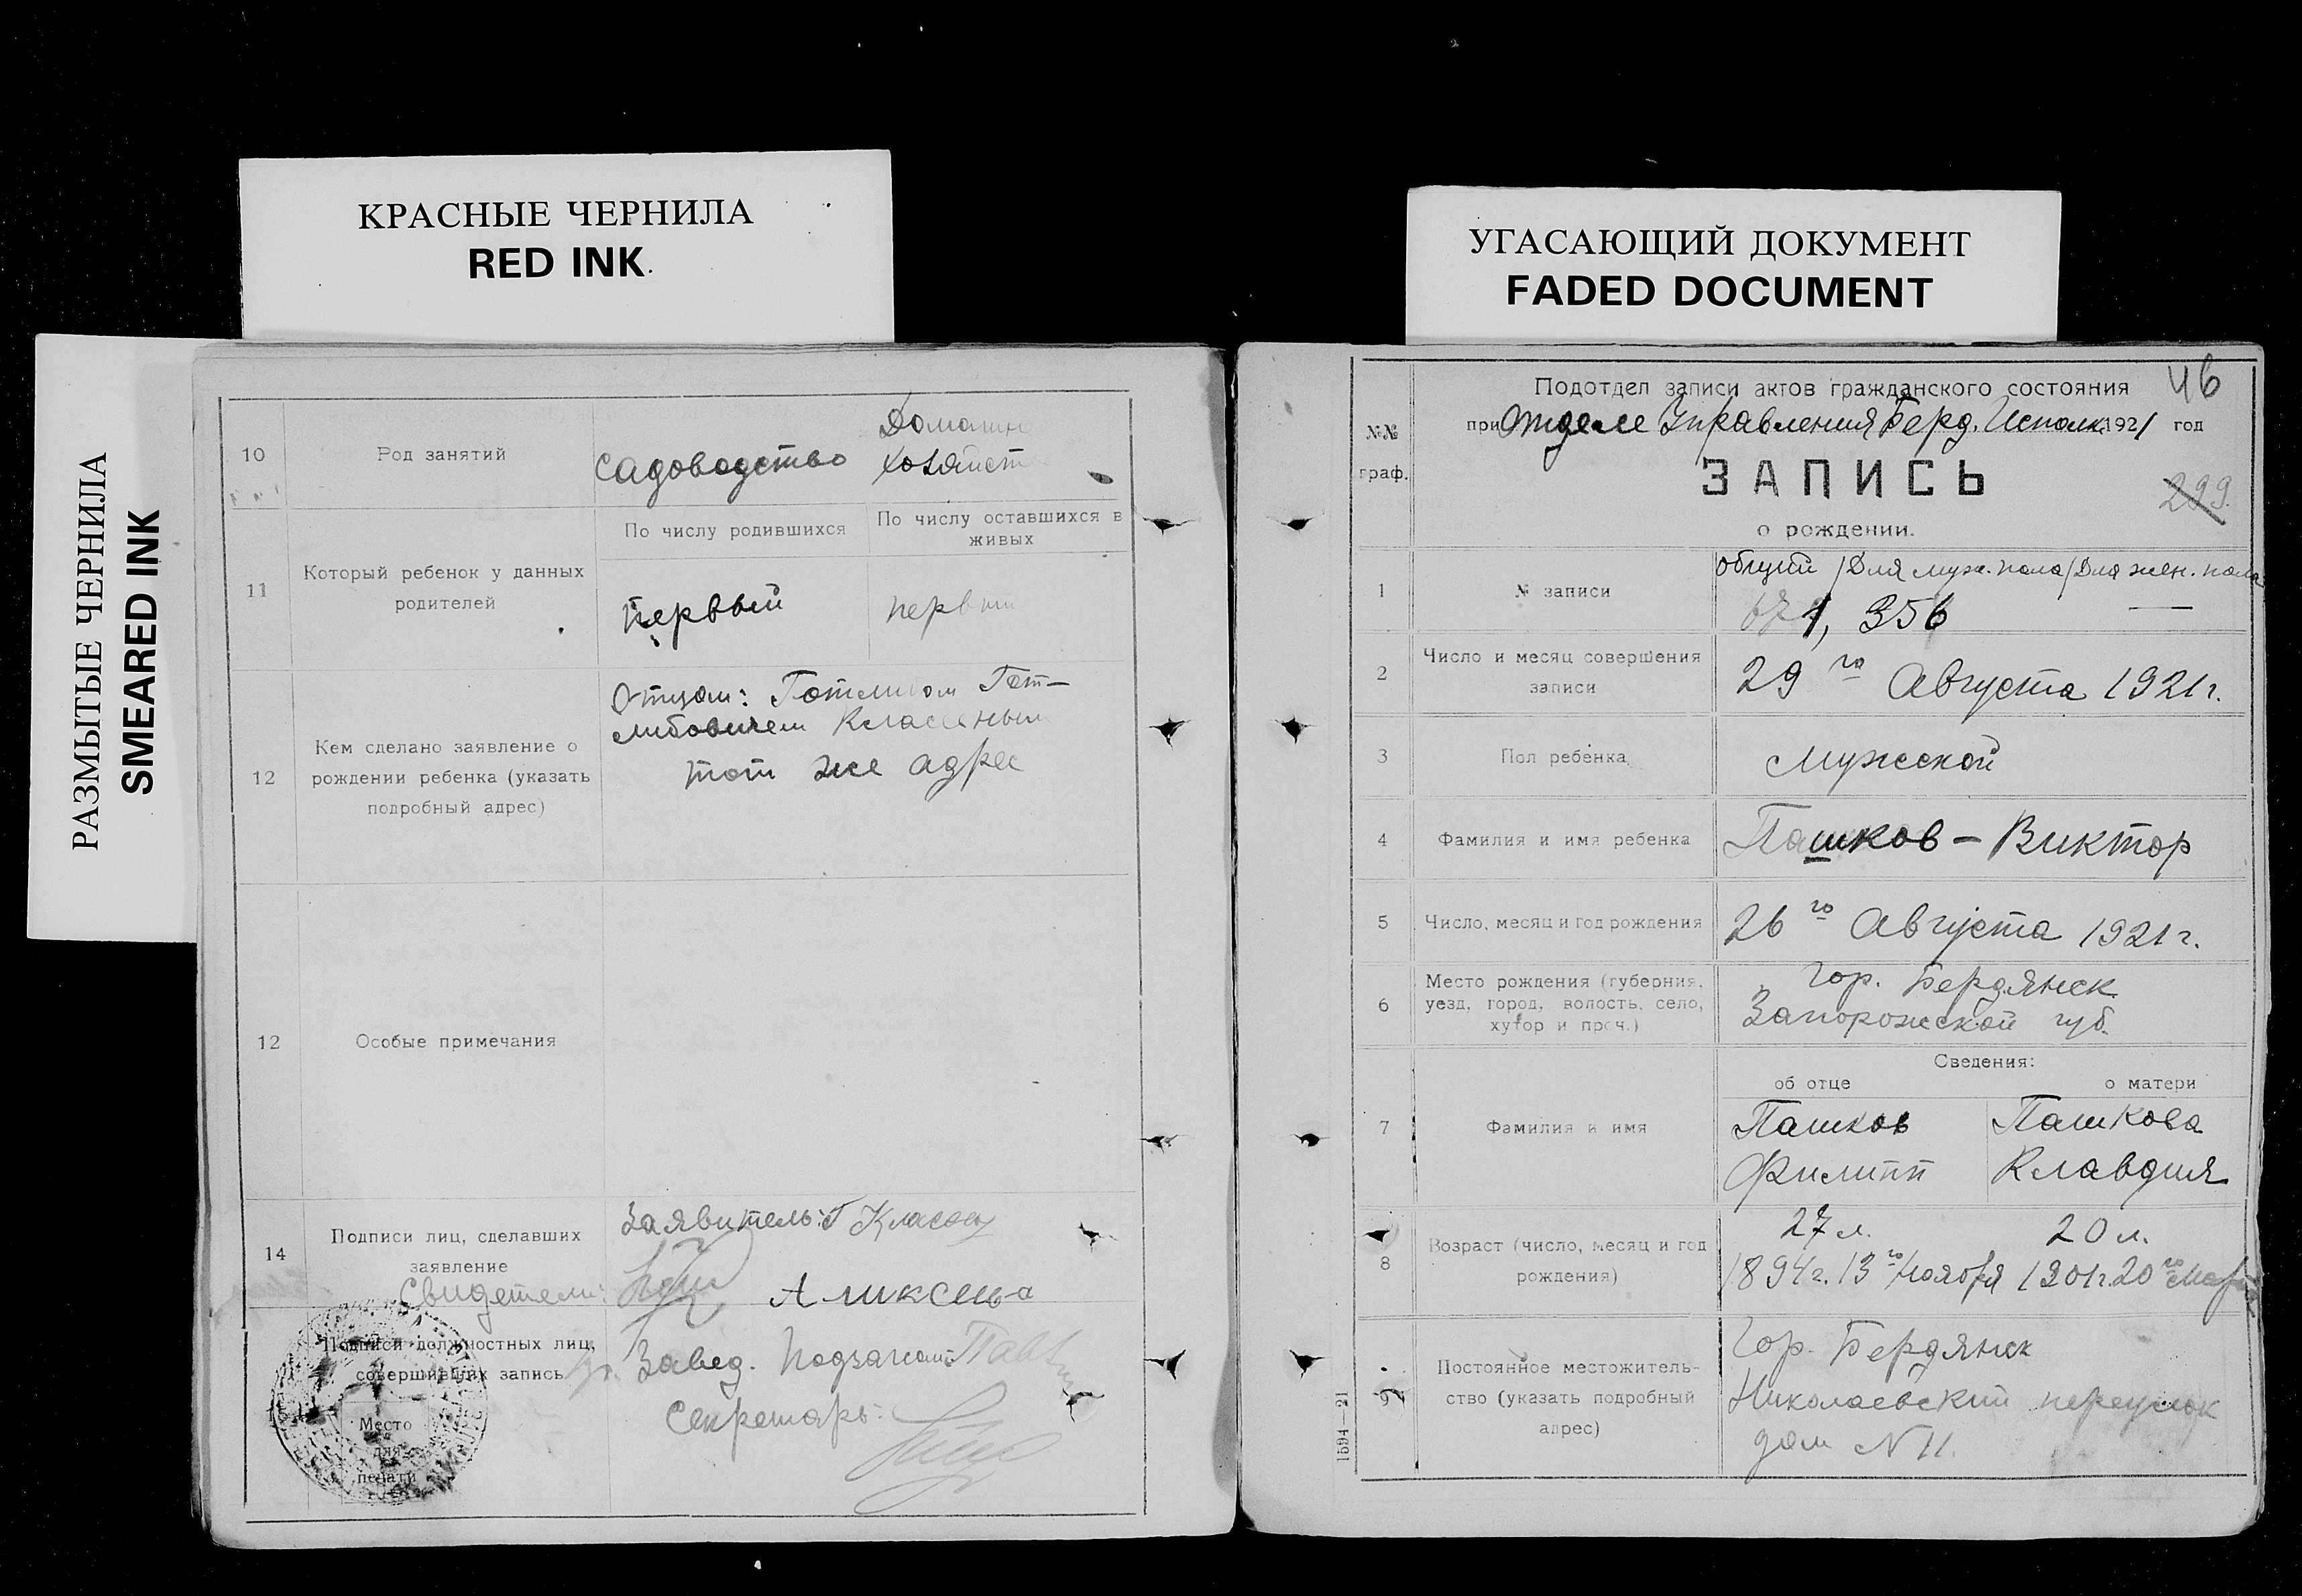 КРАСНЫЕ ЧЕРНИЛА
RED INK
РАЗМЫТЫЕ ЧЕРНИЛА
SMEARED INK
10 Род занятий садоводство Домашн хозяйст
11 Который ребенок у данных родителей
По числу родившихся
По числу оставшихся в живых
первый
первый
12 Кем сделано заявление о рождении ребенка (указать подробный адрес)
Отцом: Готлибом Гот-
либовичем Классеным
тот же адрес
12 Особые примечания
14 Подписи лиц, сделавших заявление
Заявитель: Г Класен
Свидетели:
15 Подписи должностных лиц, совершивших запись
Завед. Подзагсом:
Секретарь:
Место
для
печати
УГАСАЮЩИЙ ДОКУМЕНТ
FADED DOCUMENT
46
№№ граф.
Подотдел записи актов гражданского состояния
при Отделе Управления Берд. Исполк. 1921 год
ЗАПИСЬ
299.
о рождении.
общий / Для муж. пола / Для жен. пола
1 № записи 671, 356 —
2 Число и месяц совершения записи 29го Августа 1921 г.
3 Пол ребенка Мужской
4 Фамилия и имя ребенка Пашков – Виктор
5 Число, месяц и год рождения 26го Августа 1921 г.
6 Место рождения (губерния, уезд, город, волость, село, хутор и проч.)
Гор. Бердянск
Запорожской губ.
Сведения:
об отце о матери
7 Фамилия и имя
Пашков Пашкова
Филипп Клавдия
8 Возраст (число, месяц и год рождения)
27 л. 20 л.
1894 г. 13го Ноября 1901 г. 20го Мар
9 Постоянное местожитель-
ство (указать подробный
адрес)
Гор. Бердянск
Николаевский переулок
дом N 11.
1594—21